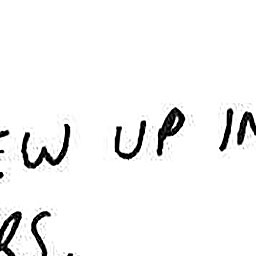 EW UP IN
RS.